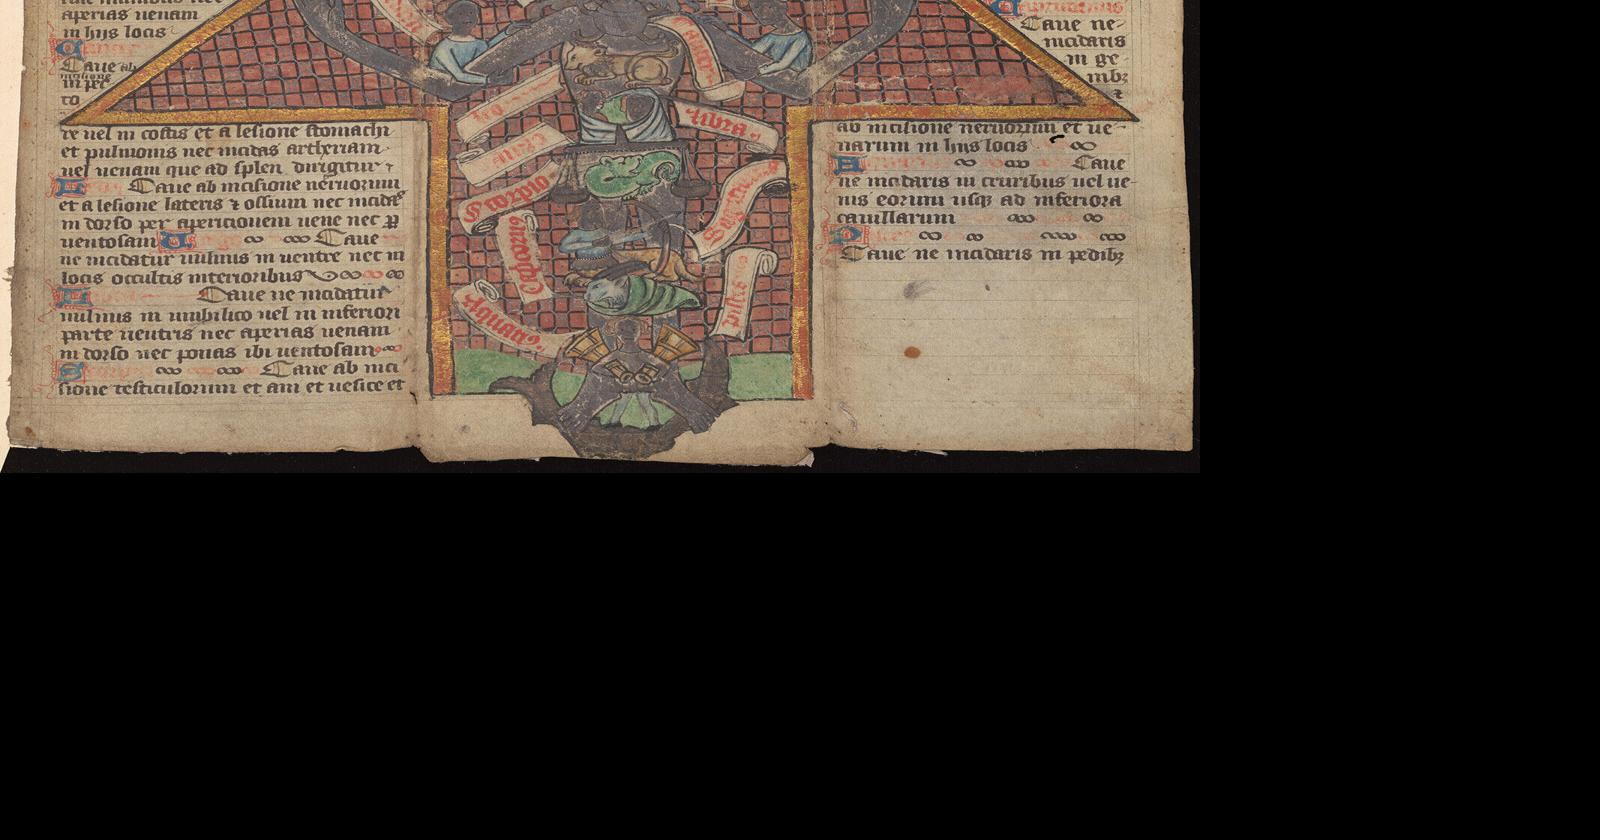 aperias uenam
in hijs locis
Caue ab
incisione
in pec
to
re uel in costis et a lesione stomachi
et pulmonis nec incidas artheriam
uel uenam que ad splen dirigitur
Caue ab incisione neruorum
et a lesione lateris ⁊ ossium nec incidas
in dorso per apericionem uene nec ꝑ
uentosam Caue
ne incidatur uulnus in uentre nec in
locis occultis interioribus
Caue ne incidatur
uulnus in umbilico uel in inferiori
parte uentris nec aperias uenam
in dorso nec ponas ibi uentosam
Caue ab inci
sione testiculorum et ani et uesice et
Cancer
Leo
libra
Scorpio
Sagittarius
Capicorn9
pisces
Aquari9
Capricornus
Caue ne
incidaris
in ge
nibꝫ
⁊
ab incisione neruorum et ue
narum in hijs locis
Caue
ne incidaris in cruribus uel ue
nis eorum usqꝫ ad inferiora
cauillarum
Caue ne incidaris in pedibꝫ